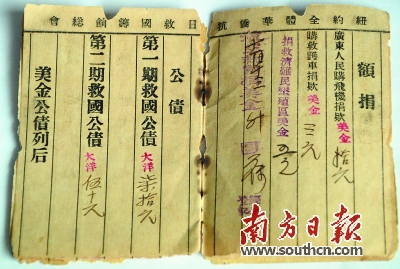 紐約全體華僑抗日救國籌餉總會
額捐
廣東人民購飛機捐欵美金拾元
購救護車捐欵美金三元
捐救濟難民墾殖區美金五元
公債
第一期救國公債大洋柒拾元
第二期救國公債大洋伍十元
美金公債列后
南方日报
www.southcn.com